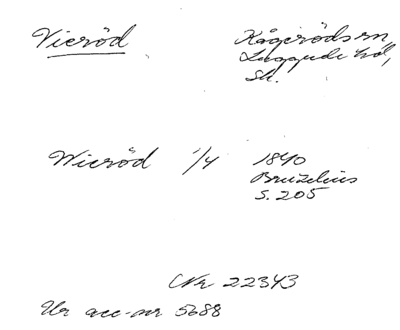 Vieröd
Kågeröds sn,
Luggude hd,
Sk.
Wieröd 1/4 1840
Bruzelius
S. 205
Nr 22343
Ur acc-nr 5688